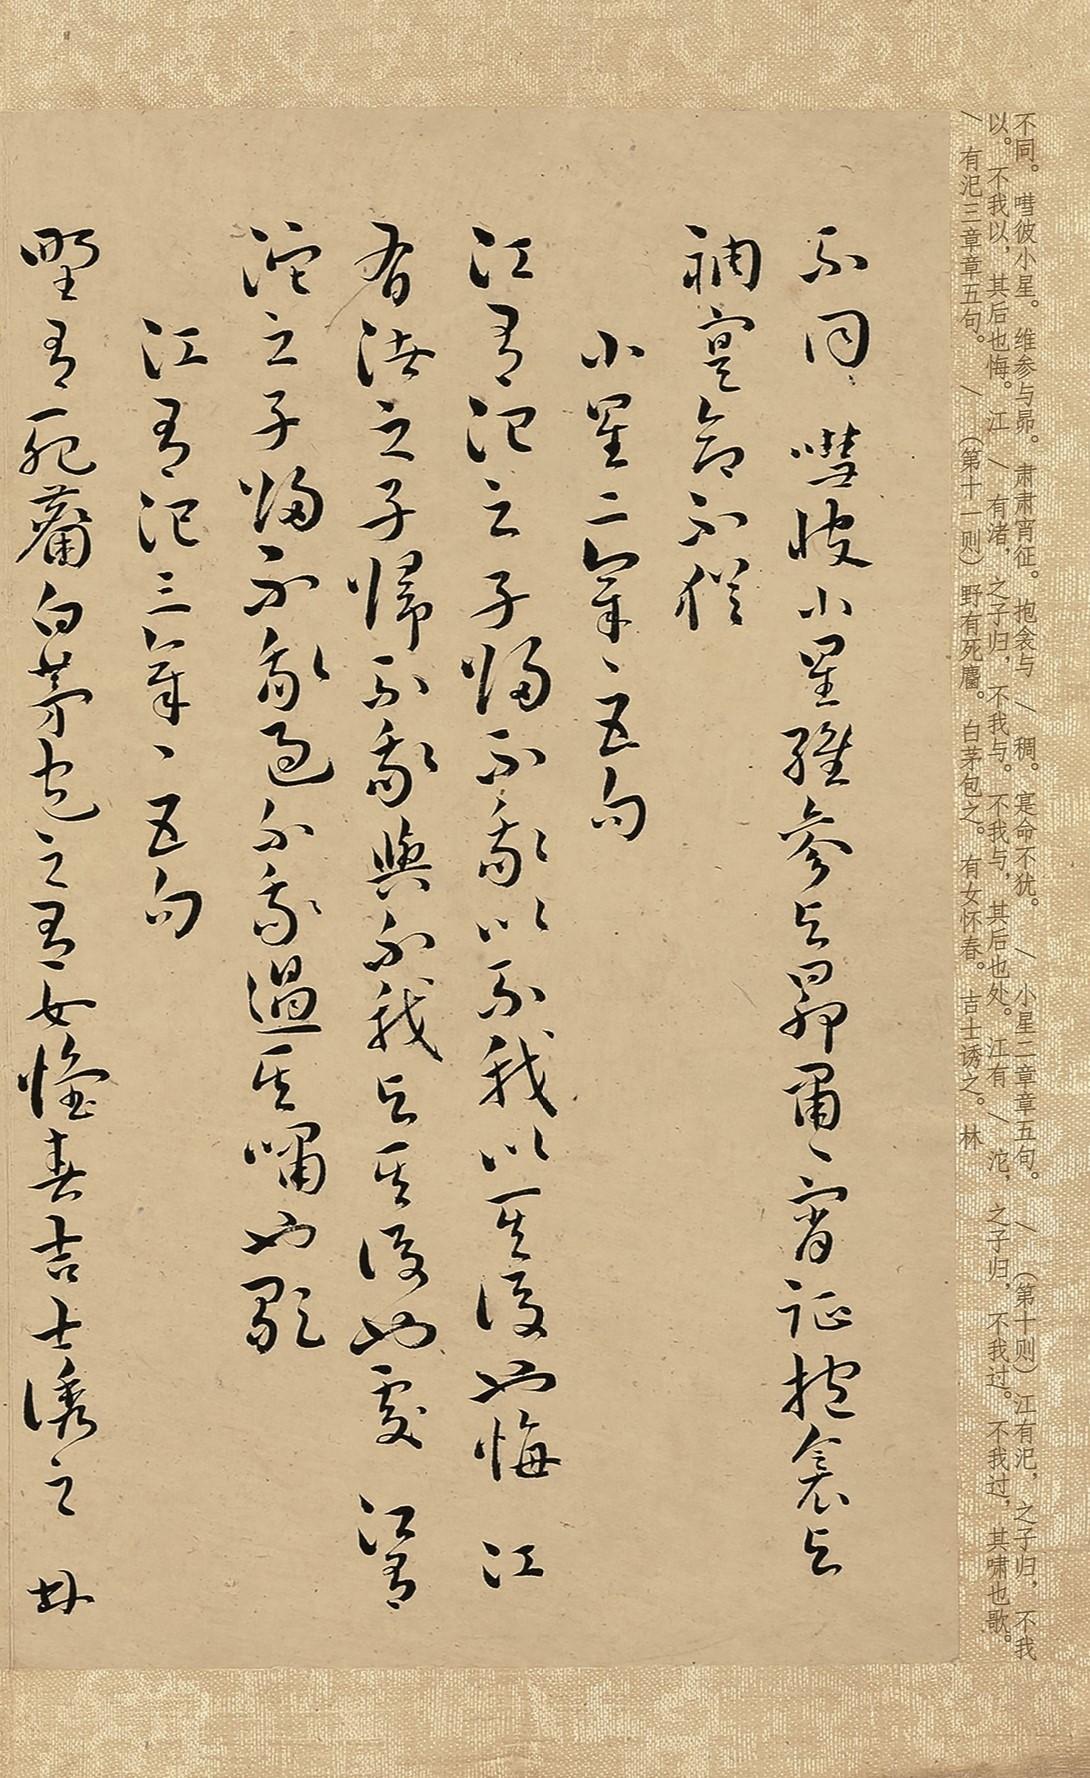 不同。嘒彼小星。维参与昴。肃肃宵征。抱衾与\稠。寔命不犹。\小星二章章五句。\(第十则)江有汜，之子归，不我
以。不我以，其后也悔。江\有渚，之子归，不我与。不我与，其后也处。江有\沱，之子归，不我过。不我过，其啸也歌。
\有汜三章章五句。\(第十一则)野有死麕。白茅包之。有女怀春。吉士诱之。林
不同 嘒彼小星維參与昴肅〻宵征抱衾与
裯寔命不猶
小星二章〻五句
江有汜之子歸不我以不我以其後也悔 江
有渚之子歸不我與不我与其後也處 江有
沱之子歸不我過不我過其嘯也歌
江有汜三章〻五句
野有死麕白茅包之有女懷春吉士誘之 林